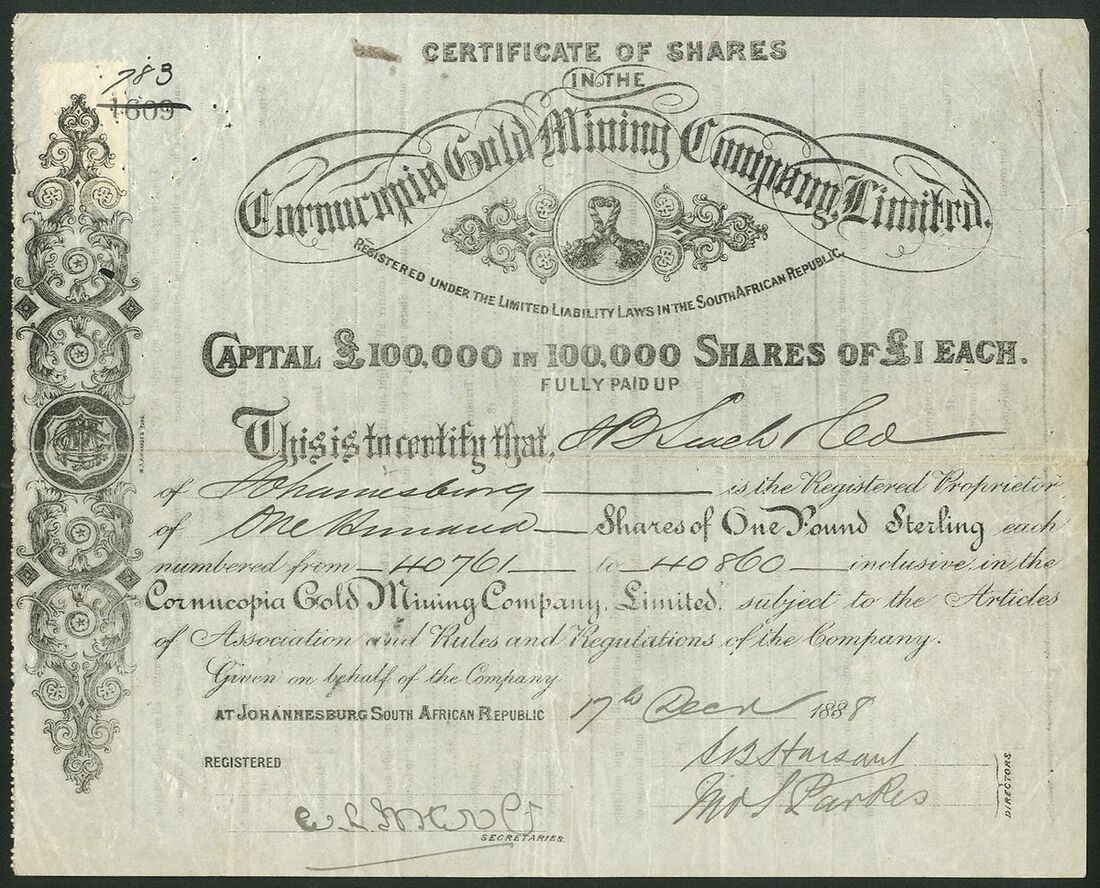 CERTIFICATE OF SHARES
783
IN THE
1609
Cornucopia Gold Mining Company, Limited.
REGISTERED UNDER THE LIMITED LIABILITY LAWS IN THE SOUTH AFRICAN REPUBLIC
CAPITAL £100,000 IN 100,000 SHARES OF £1 EACH.
FULLY PAID UP
This is to certify that,
of Johannesburg is the Registered Proprietor
of One Hundred Shares of One Pound Sterling each
numbered from 40761 to 40860 inclusive, in the
Cornucopia Gold Mining Company, Limited, subject to the Articles
of Association and Rules and Regulations of the Company.
Given on behalf of the Company
AT JOHANNESBURG SOUTH AFRICAN REPUBLIC 17th Decr 1888
REGISTERED
Jno S Parkes
DIRECTORS
SECRETARIES.